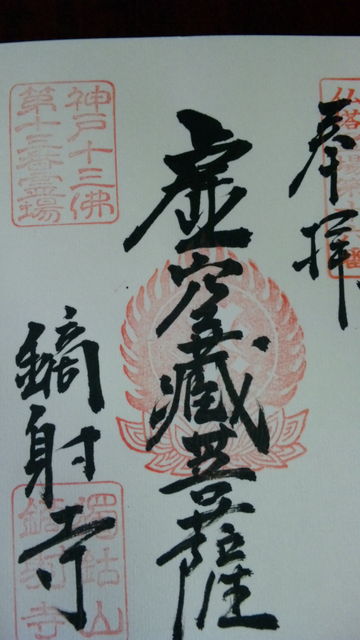 奉拝
虚空蔵菩薩
神戸十三佛
第十三番霊場
鏑射寺